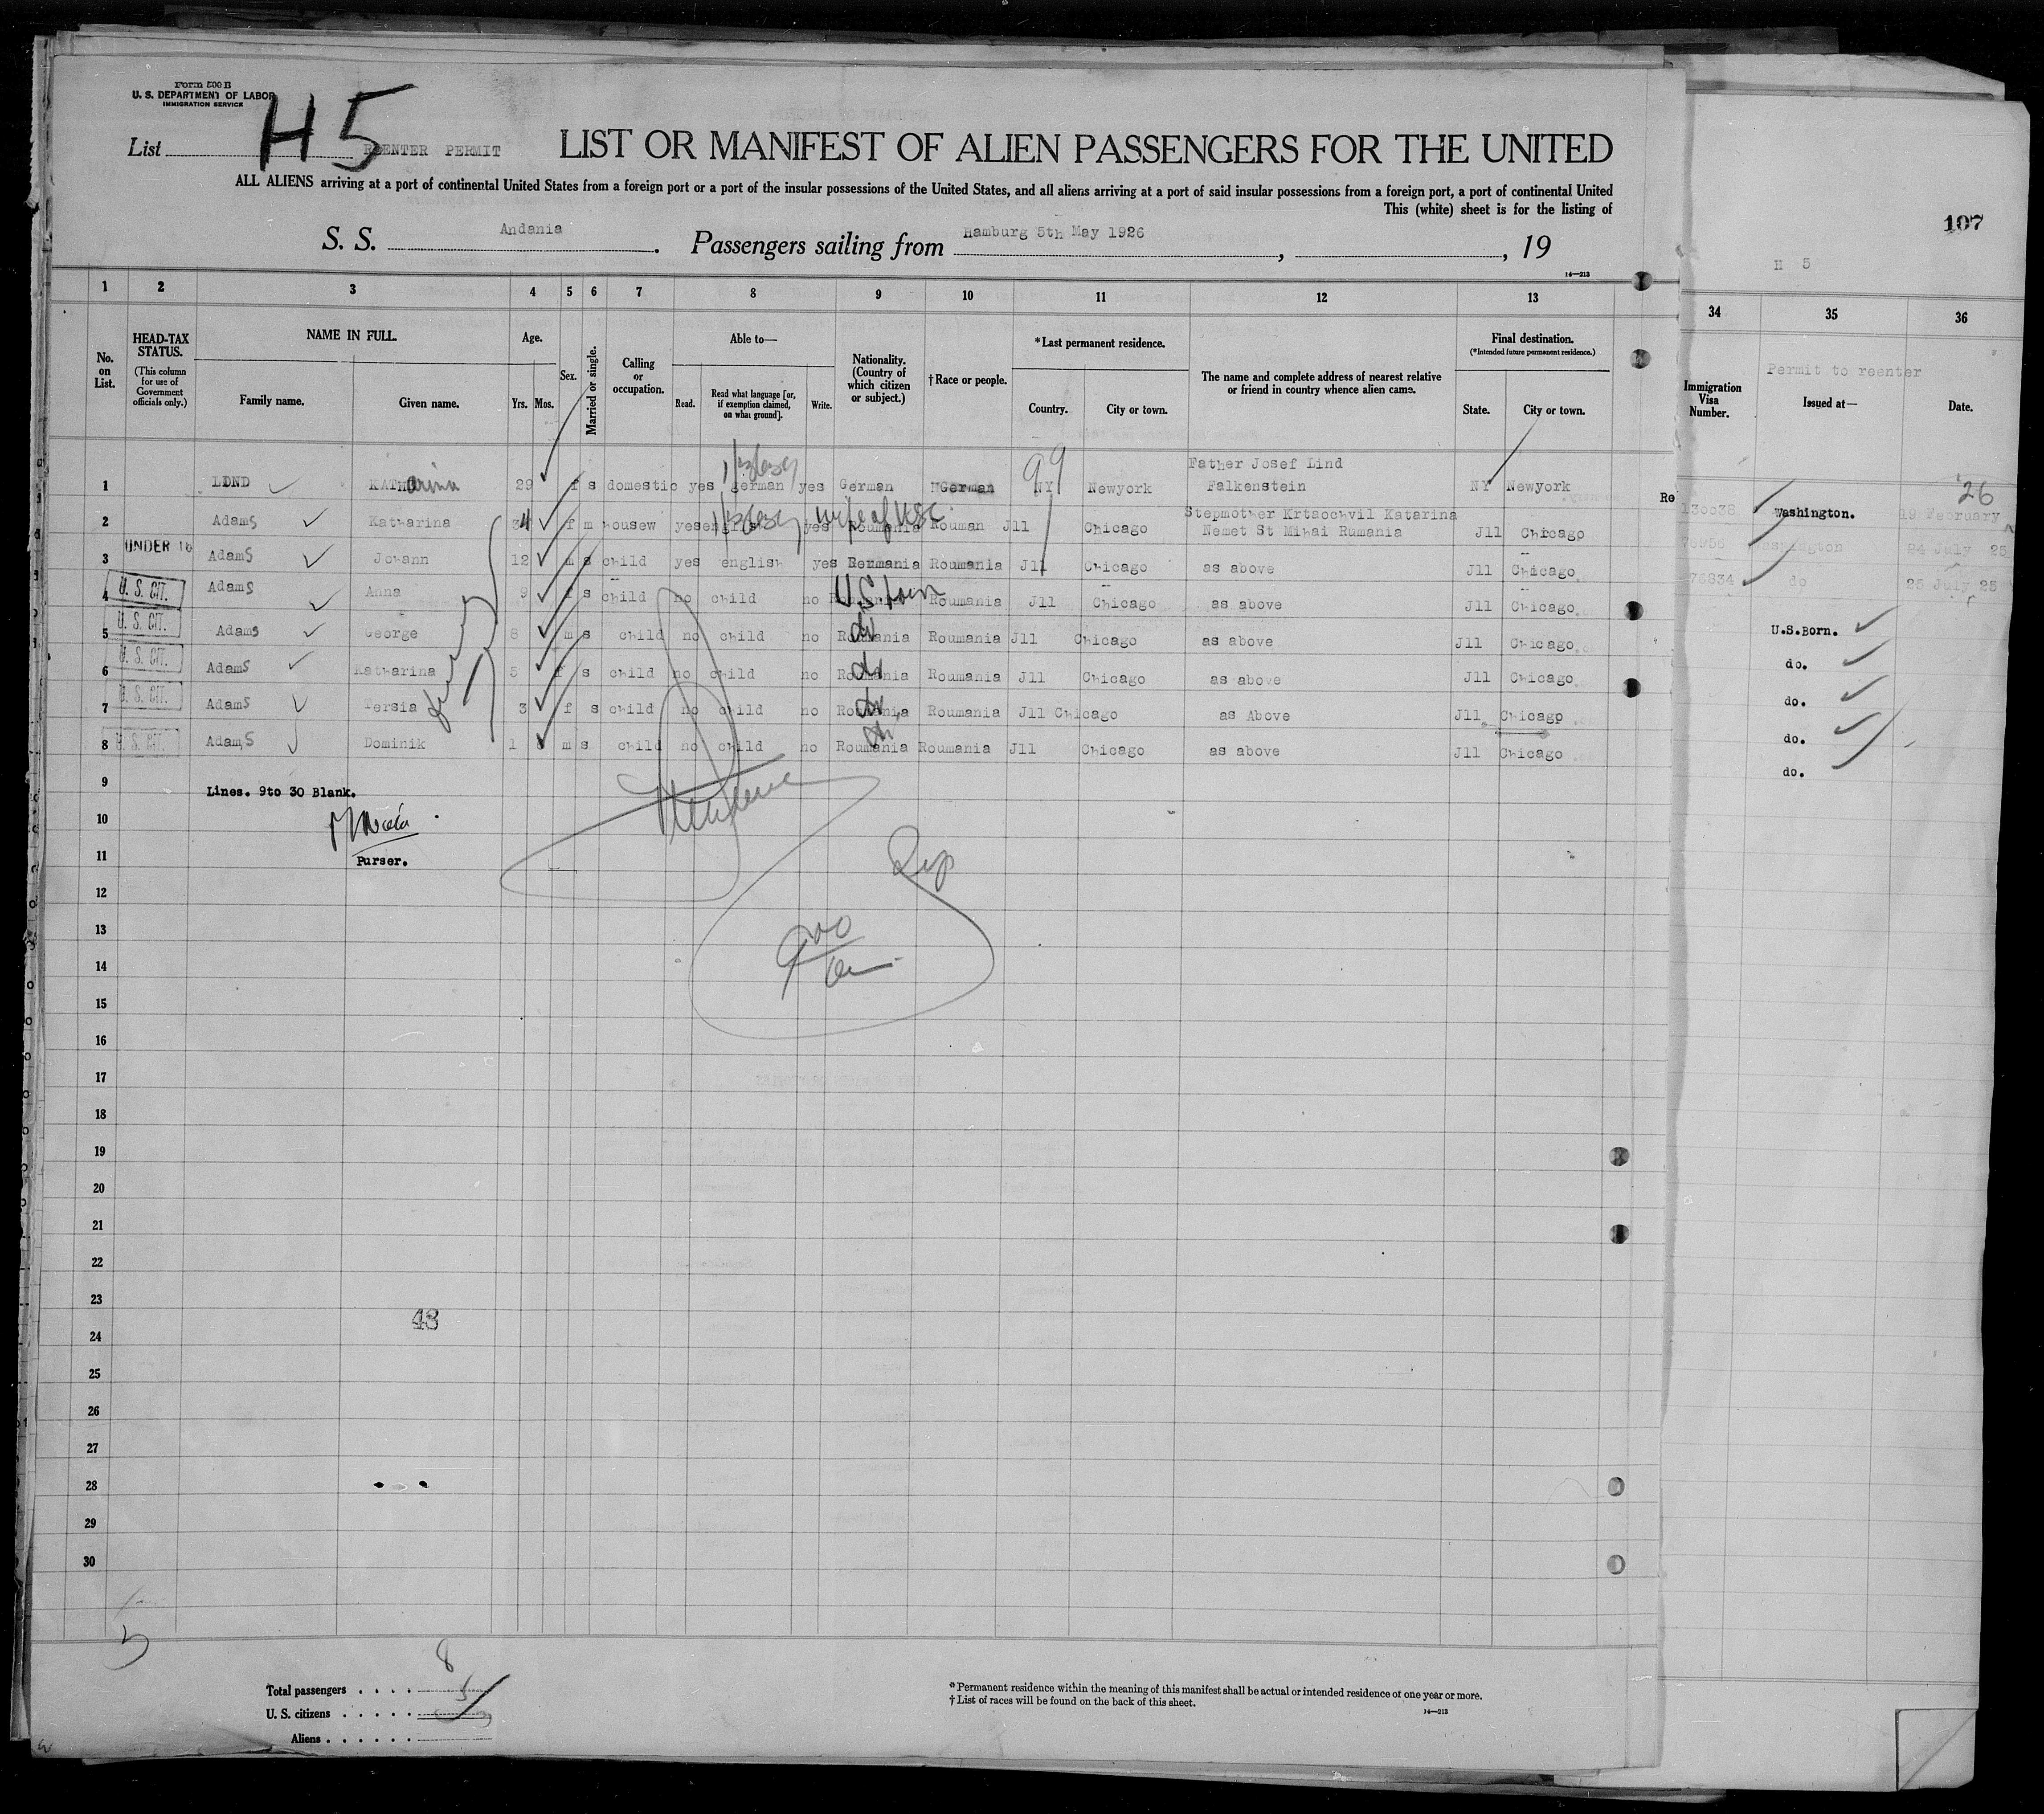 Form 500 B
U. S. DEPARTMENT OF LABOR
IMMIGRATION SERVICE
H 5
List REENTER PERMIT LIST OR MANIFEST OF ALIEN PASSENGERS FOR THE UNITED
ALL ALIENS arriving at a port of continental United States from a foreign port or a port of the insular possessions of the United States, and all aliens arriving at a port of said insular possessions from a foreign port, a port of continental United
This (white) sheet is for the listing of
S. S. Andania. Passengers sailing from Hamburg 5th May 1926, , 19
14—213
107
H 5
1 2 3 4 5 6 7 8 9 10 11 12 13 34 35 36
No. on List.
HEAD-TAX STATUS.
(This column for use of Government officials only.)
NAME IN FULL.
Family name. Given name.
Age.
Yrs. Mos.
Sex.
Married or single.
Calling or occupation.
Able to—
Read. Read what language [or, if exemption claimed, on what ground]. Write.
Nationality. (Country of which citizen or subject.)
†Race or people.
*Last permanent residence.
Country. City or town.
The name and complete address of nearest relative or friend in country whence alien came.
Final destination.
(*Intended future permanent residence.)
State. City or town.
Immigration Visa Number.
Permit to reenter
Issued at—
Date.
Father Josef Lind
1 LIND KATHarina 29 f s domestic yes german yes German German NY Newyork Falkenstein NY Newyork Re 130038 Washington. 19 February 26
wife of USC
Stepmother Krtaochvil Katarina
2 Adams Katharina 34 f m housew yes english yes Roumania Rouman Jll Chicago Nemet St Mihai Rumania Jll Chicago 76956 Washington 24 July 25
UNDER 16
3 Adams Johann 12 m s child yes english yes Rermania Roumania Jll Chicago as above Jll Chicago 76834 do 25 July 25
4 U. S. CIT. Adams Anna 9 f s child no child no U S born Roumania Jll Chicago as above Jll Chicago U.S.Born.
5 U. S. CIT. Adams George 8 m s child no child no Roumania do Roumania Jll Chicago as above Jll Chicago do.
6 U. S. CIT. Adams Katharina 5 f s child no child no Roumania do Roumania Jll Chicago as above Jll Chicago do.
7 U. S. CIT. Adams Tersia 3 f s child no child no Roumania do Roumania Jll Chicago as Above Jll Chicago do.
8 U. S. CIT. Adams Dominik 1 8 m s child no child no Roumania do Roumania Jll Chicago as above Jll Chicago do.
9 Lines. 9to 30 Blank.
10
11 Purser.
12
13
14
15
16
17
18
19
20
21
22
23
48
24
25
26
27
28
29
30
8
Total passengers . . . .
5
U. S. citizens . . . . .
Aliens . . . . . .
*Permanent residence within the meaning of this manifest shall be actual or intended residence of one year or more.
†List of races will be found on the back of this sheet.
14—213